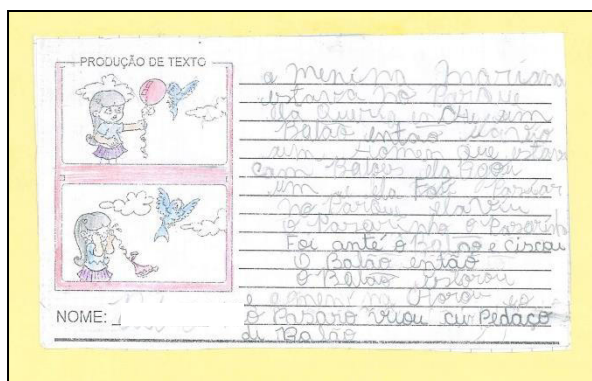 PRODUÇÃO DE TEXTO
a menina marina
estava no Parque
ela queria um
Balão então
um homem que estava
com Balões ela
um e ela Foi Passiar
no Parque ela viu
o Pasarinho o Pasarinho
Foi anté o Balão e ciscou
O Balão então
O Balão istorou
e a menina Horou eo
NOME:
o Pasaro viou cu Pedaço
di Balão